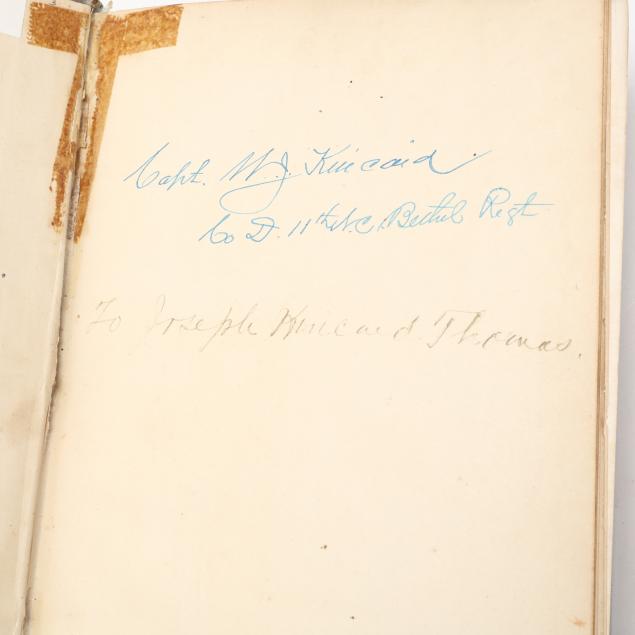 Capt. W. J. Kincaid.
Co D. 11th N.C. Bethel Regt
To Joseph Kincaid Thomas.